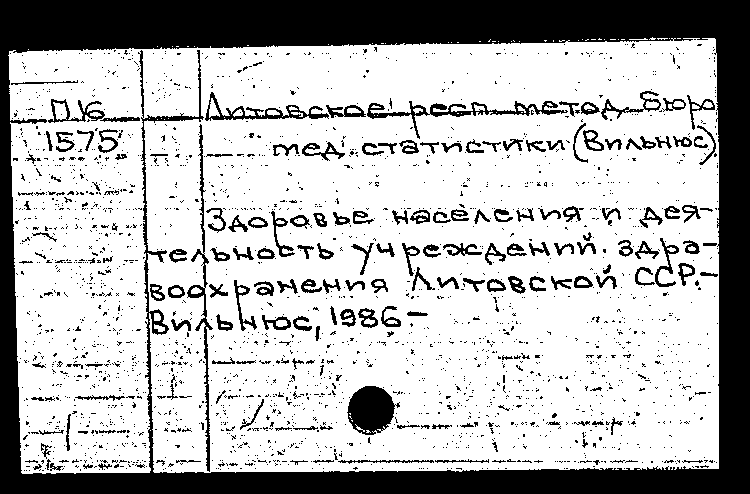 П16 Литовское респ. метод. бюро
1575 мед. статистики (Вильнюс)
Здоровье населения и дея-
тельность учреждений здра-
воохранения Литовской ССР.-
Вильнюс, 1986-